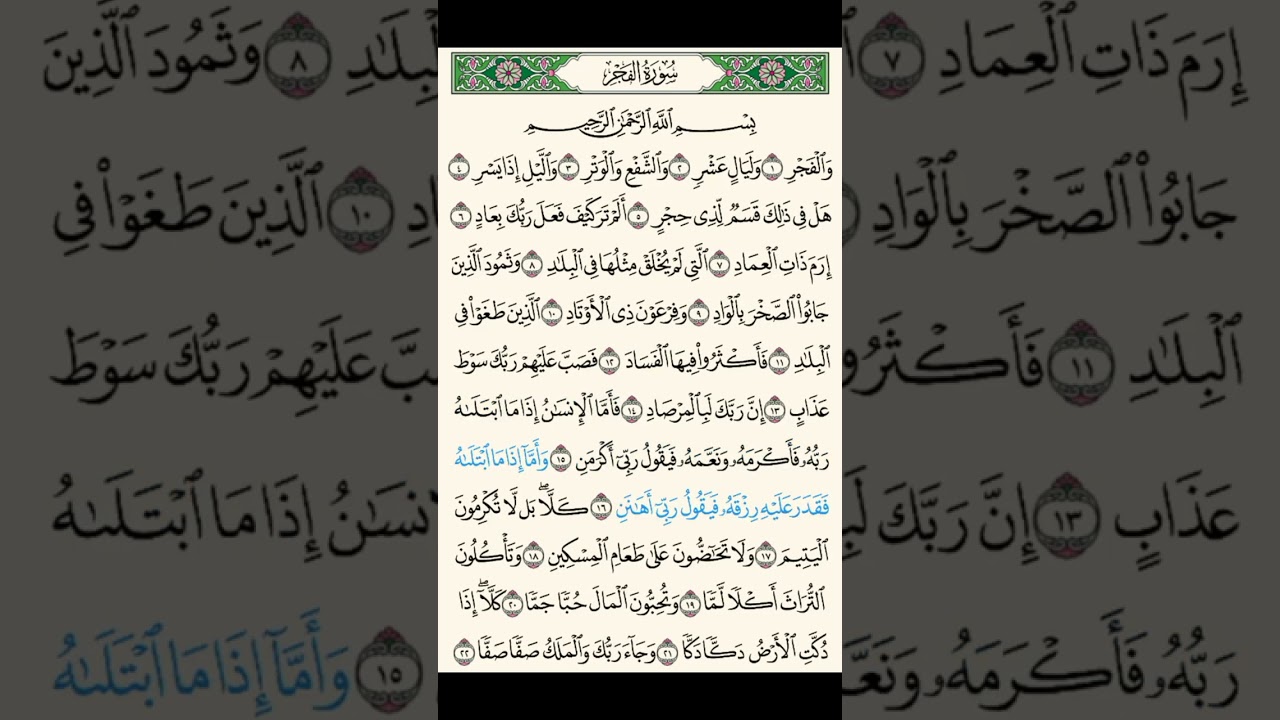 سُورَةُ الْفَجْرِ
بِسْمِ ٱللَّهِ ٱلرَّحْمَٰنِ ٱلرَّحِيمِ
وَٱلْفَجْرِ ١ وَلَيَالٍ عَشْرٍ ٢ وَٱلشَّفْعِ وَٱلْوَتْرِ ٣ وَٱلَّيْلِ إِذَا يَسْرِ ٤
هَلْ فِى ذَٰلِكَ قَسَمٌ لِّذِى حِجْرٍ ٥ أَلَمْ تَرَ كَيْفَ فَعَلَ رَبُّكَ بِعَادٍ ٦
إِرَمَ ذَاتِ ٱلْعِمَادِ ٧ ٱلَّتِى لَمْ يُخْلَقْ مِثْلُهَا فِى ٱلْبِلَٰدِ ٨ وَثَمُودَ ٱلَّذِينَ
جَابُوا۟ ٱلصَّخْرَ بِٱلْوَادِ ٩ وَفِرْعَوْنَ ذِى ٱلْأَوْتَادِ ١٠ ٱلَّذِينَ طَغَوْا۟ فِى
ٱلْبِلَٰدِ ١١ فَأَكْثَرُوا۟ فِيهَا ٱلْفَسَادَ ١٢ فَصَبَّ عَلَيْهِمْ رَبُّكَ سَوْطَ
عَذَابٍ ١٣ إِنَّ رَبَّكَ لَبِٱلْمِرْصَادِ ١٤ فَأَمَّا ٱلْإِنسَٰنُ إِذَا مَا ٱبْتَلَىٰهُ
رَبُّهُۥ فَأَكْرَمَهُۥ وَنَعَّمَهُۥ فَيَقُولُ رَبِّىٓ أَكْرَمَنِ ١٥ وَأَمَّآ إِذَا مَا ٱبْتَلَىٰهُ
فَقَدَرَ عَلَيْهِ رِزْقَهُۥ فَيَقُولُ رَبِّىٓ أَهَٰنَنِ ١٦ كَلَّا ۖ بَل لَّا تُكْرِمُونَ
ٱلْيَتِيمَ ١٧ وَلَا تَحَٰٓضُّونَ عَلَىٰ طَعَامِ ٱلْمِسْكِينِ ١٨ وَتَأْكُلُونَ
ٱلتُّرَاثَ أَكْلًا لَّمًّا ١٩ وَتُحِبُّونَ ٱلْمَالَ حُبًّا جَمًّا ٢٠ كَلَّآ ۖ إِذَا
دُكَّتِ ٱلْأَرْضُ دَكًّا دَكًّا ٢١ وَجَآءَ رَبُّكَ وَٱلْمَلَكُ صَفًّا صَفًّا ٢٢